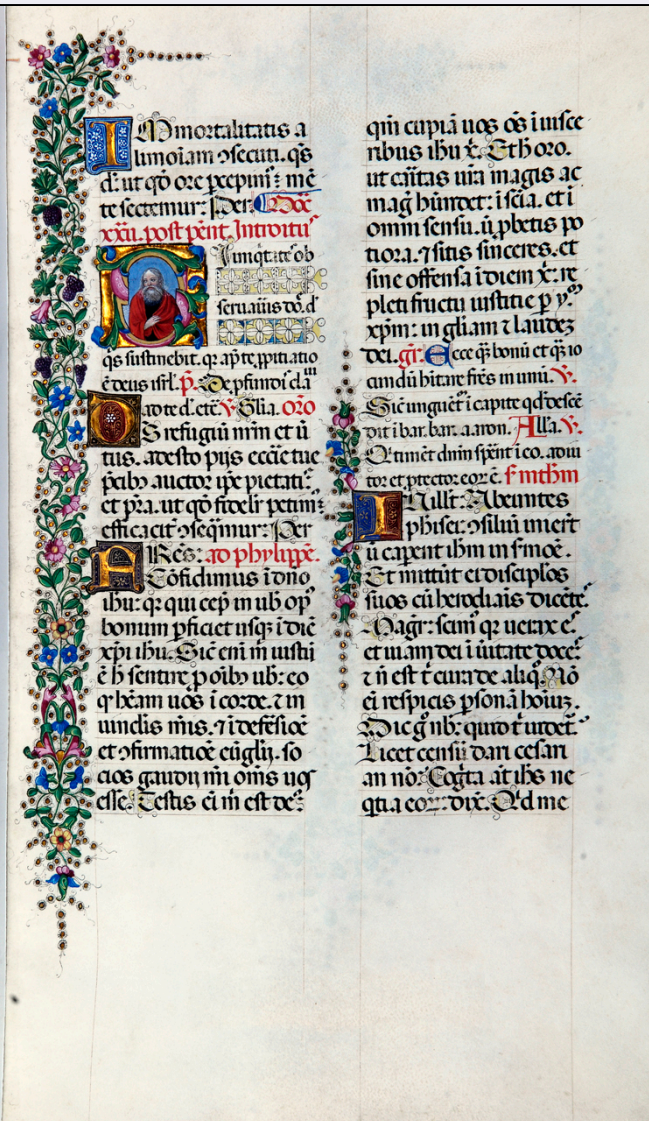 IMmortalitatis a
limoiam ↄsecuti. q̄s
d̄. ut qđ ore p̄cepim᷒ mē
te sectemur: Per. Doīc
xxii. post pent. Introitus
Si iniqtates ob
seruaūis dō. d̄
q̄s sustinebit. qr ap̄ te ꝓpitiatio
ē deus isrl. p̄. De ꝓfundi cla
aui ad te d. etc̄ V Glia. Oro
DS refugiū nrm et ū
tus. adesto pijs eccīe tue
p̄cibꝫ auctor ipe pietatis
et p̄ra. ut qđ fidelr petim᷒
efficacit ↄseqmur: Per
FRes: ad phylippē.
Cōfidimus ī dno
ihu: qr qui cep̄ in uob op᷒
bonum ꝑficiet usqꝫ ī diē
xp̄i ihu. Sic enī m iustū
ē h̄ sentire ꝓ oībꝫ uob: eo
q hēam uos ī corde. ⁊ in
uinclis mīs. ⁊ ī defēsioē
et ↄfirmatioē eūglij. so
cios gaudij mī om̄s uos
esse. Testis eī m̄ est de᷒
qm̄ cupiā uos oēs ī uisce
ribus ihu x̄. Et h̄ oro.
ut caritas ūra magis ac
mag hūndet: ī scīa. et ī
omni sensu. ū ꝓbetis po
tiora. ⁊ sitis sinceres. et
sine offensa ī diem x̄: re
pleti fructu iustitie ꝑ y.
xp̄m: in gliam ⁊ laudeꝫ
dei. gr. Ecce q̄ bonū et q̄ io
cundū hitare frēs in unū. V.
Sic unguēt ī capite qđ descē
dit ī bar. bar. aaron. Alla. V.
Q timēt dnm spēnt ī eo. adiu
tor et ꝓtector eor ē. S mthm
IN illr: Abeuntes
phisei: ↄsiliū inierūt
ū capent ihm in smōe.
Et mittūt ei disciplos
suos cū herodiais dicētes
Magr: scim᷒ qr uerax es
et uiam dei ī ūitate doces
⁊ n̄ est t cura de aliq. Nō
eī respicis ꝑsonā hoīuꝫ.
Dic g nob: quid t uidet.
Licet censū dari cesari
an nō: Cogta āt ihs ne
qtia eor: dix̄. Qd me